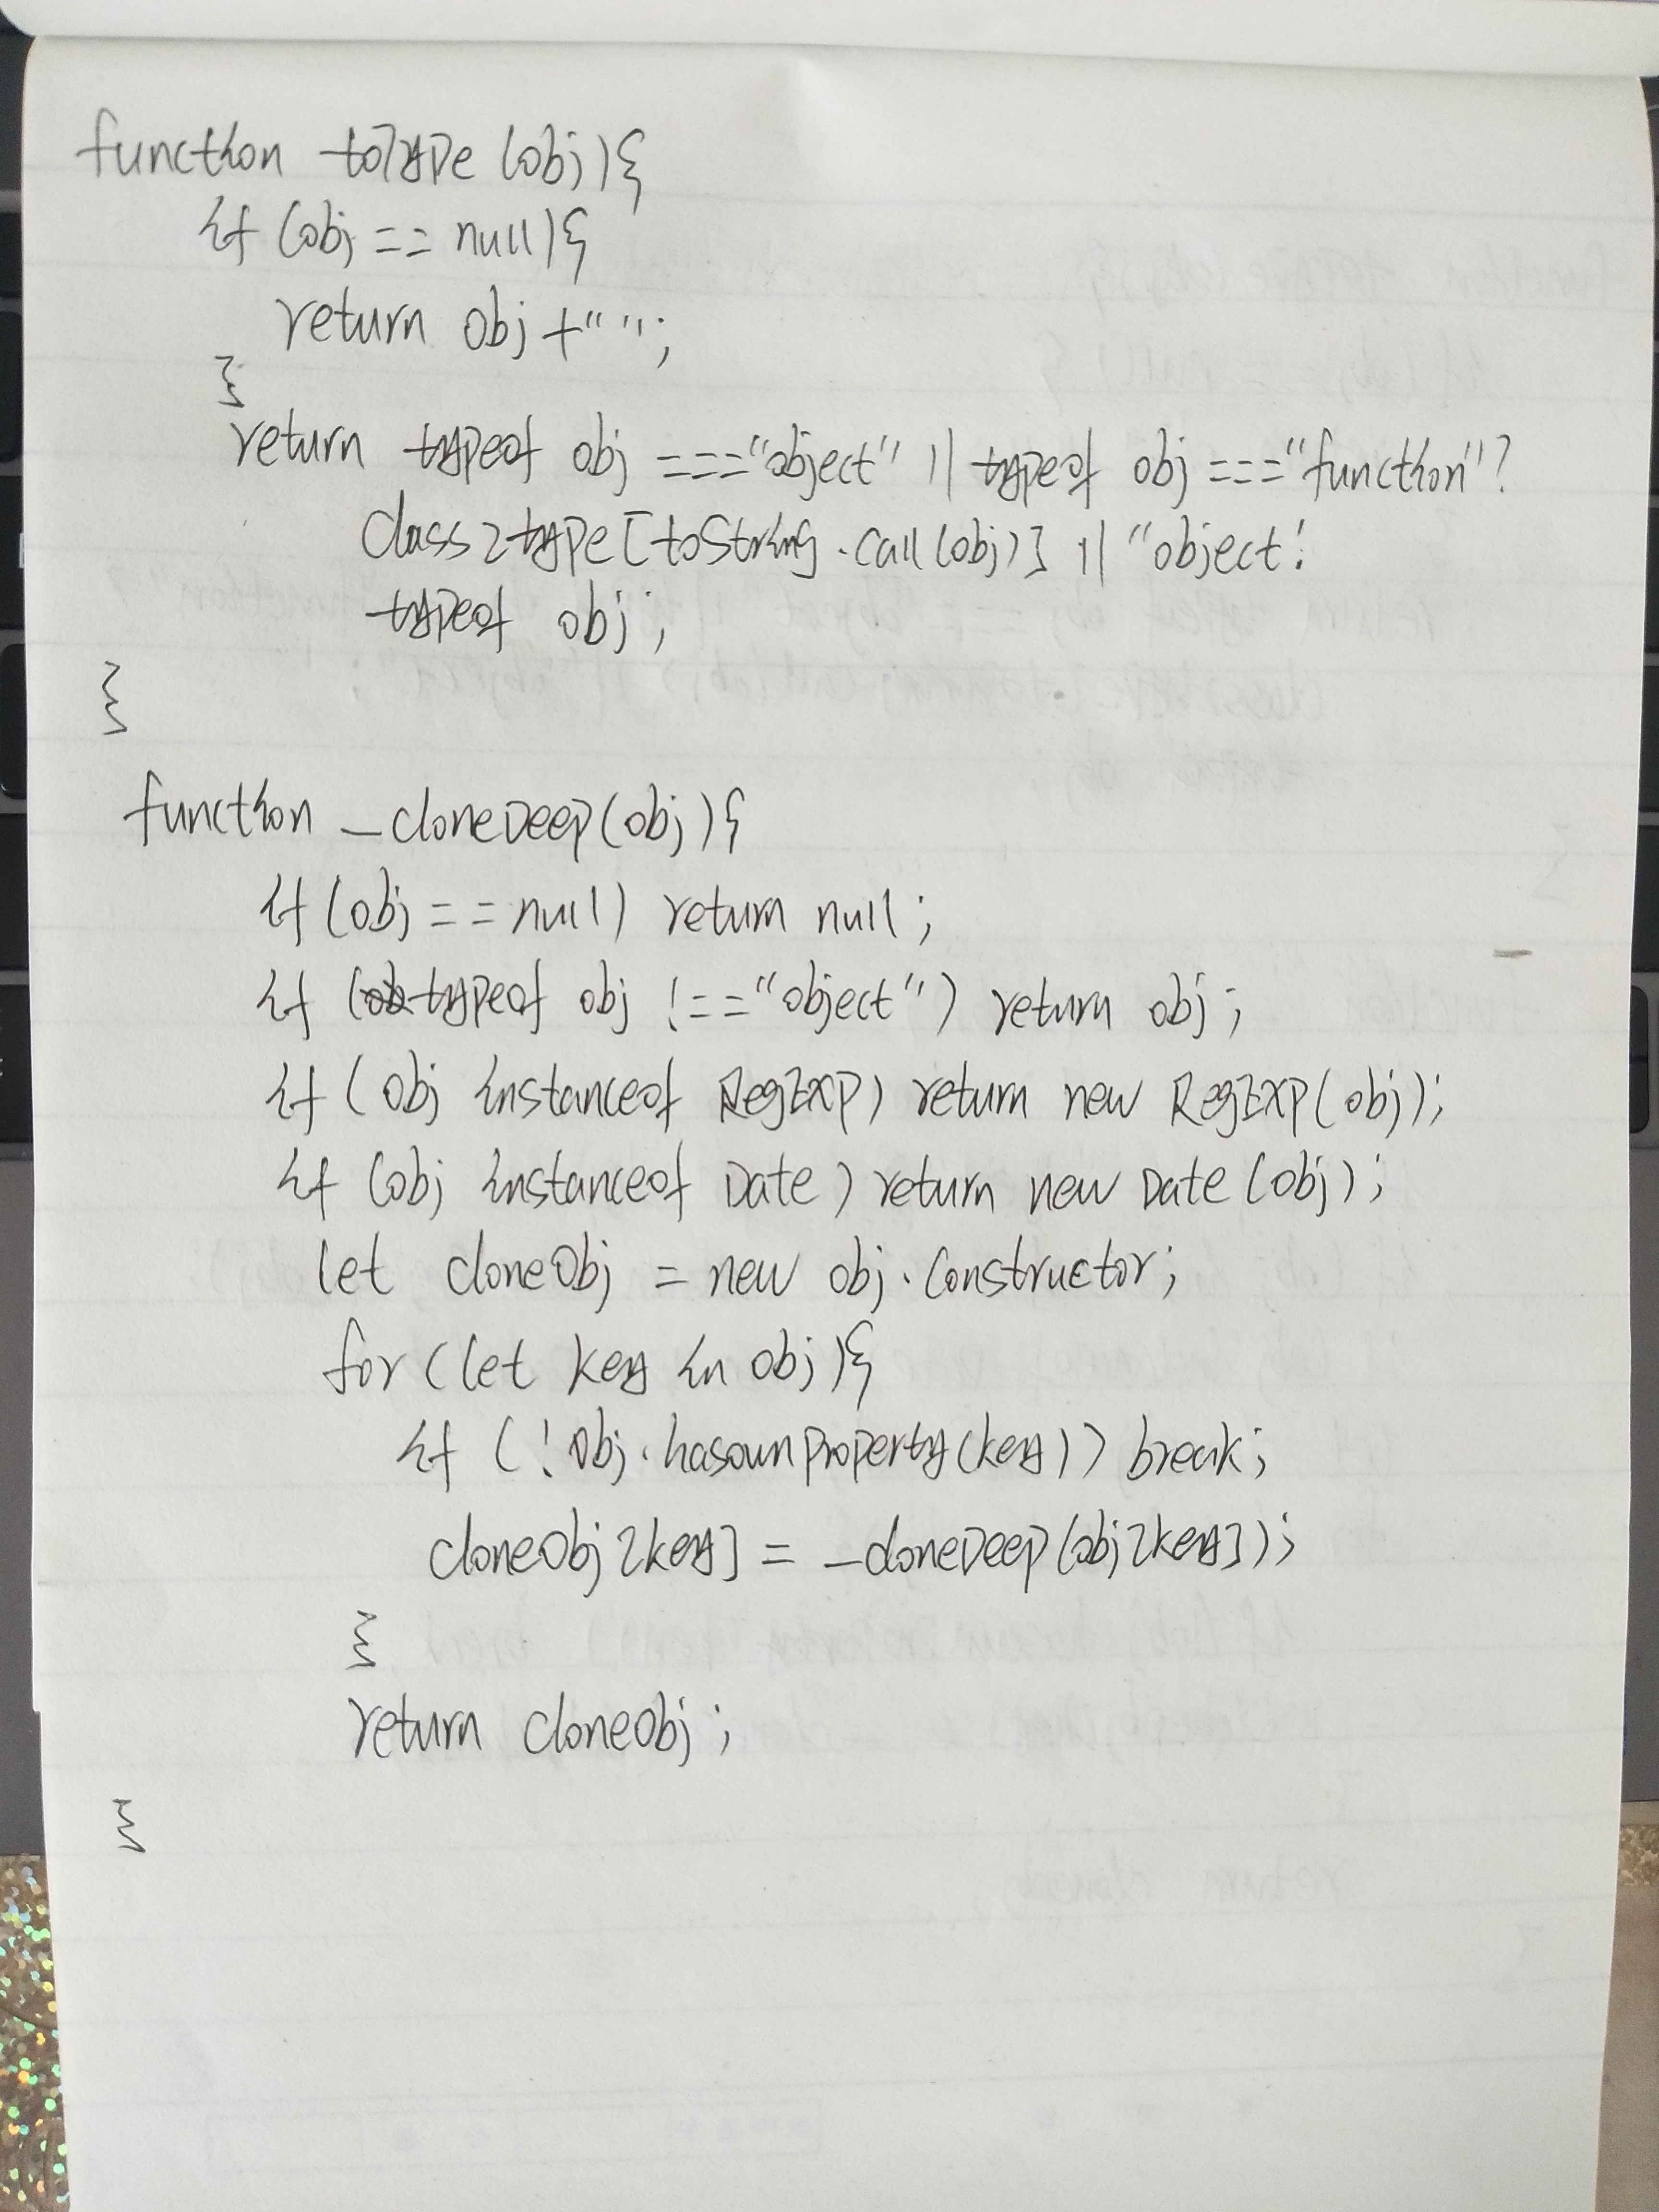 function toType (obj){
if (obj == null){
return obj +" ";
}
return typeof obj ==="object" || typeof obj ==="function"?
class2type[toString.call(obj)] || "object:
typeof obj;
}
function _cloneDeep(obj){
if (obj == null) return null;
if (typeof obj !== "object") return obj;
if (obj instanceof RegExp) return new RegExp(obj);
if (obj instanceof Date) return new Date(obj);
let cloneObj = new obj.constructor;
for (let key in obj){
if (!obj.hasownProperty(key)) break;
cloneObj[key] = _cloneDeep(obj[key]);
}
return cloneObj;
}